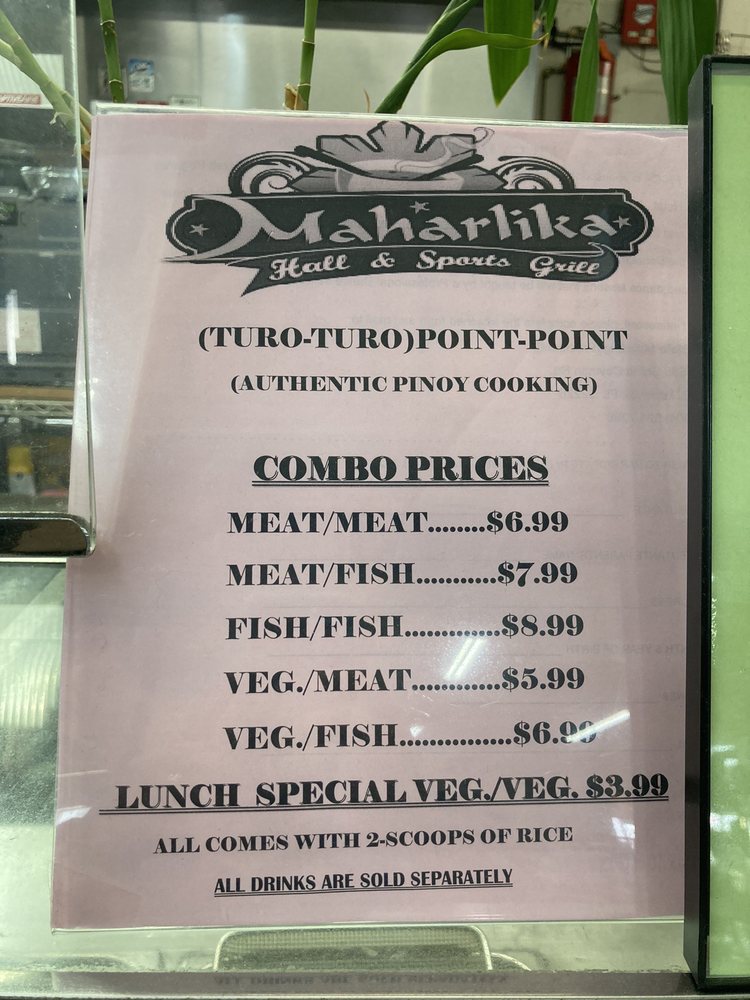 Maharlika
Hall & Sports Grill
(TURO-TURO)POINT-POINT
(AUTHENTIC PINOY COOKING)
COMBO PRICES
MEAT/MEAT........$6.99
MEAT/FISH............$7.99
FISH/FISH..............$8.99
VEG./MEAT.............$5.99
VEG./FISH................$6.99
LUNCH SPECIAL VEG./VEG. $3.99
ALL COMES WITH 2-SCOOPS OF RICE
ALL DRINKS ARE SOLD SEPARATELY